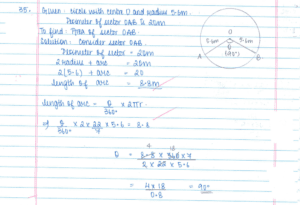 35. Given: circle with centre O and radius 5.6m.
Perimeter of sector OAB is 20m
To find: Area of sector OAB.
Solution: Consider sector OAB.
Perimeter of sector = 20m
2 radius + arc = 20m
2(5.6) + arc = 20
length of arc = 8.8m
length of arc = θ/360° × 2πr
θ/360° × 2 × 22/7 × 5.6 = 8.8
θ = 8.8 × 360 × 7 / 2 × 22 × 5.6
= 4 × 18 / 0.8 = 90°
O
5.6m 5.6m
θ
A B